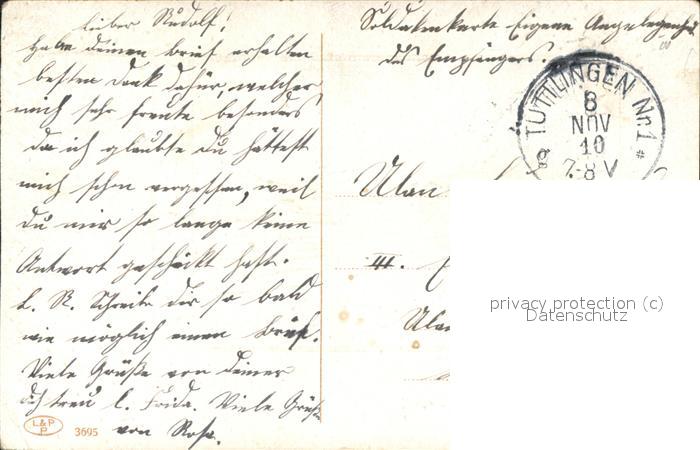 Lieber Rudolf!
Habe deinen Brief erhalten
besten Dank dafür, welcher
mich sehr freute besonders
da ich glaubte du hättest
mich schon vergessen, weil
du mir so lange keine
Antwort geschickt hast.
L. R. Schreibe dir so bald
wie möglich einen Brief.
Viele Grüße von deiner
dich treu l. Frida. Viele Grüße
von Rosa.
L&P
P
3695
Soldatenkarte Eigene Angelegenheit
des Empfängers.
TUTTLINGEN Nr. 1 *
8
NOV
10
7-8 V
Ulan
III.
Ulan
privacy protection (c)
Datenschutz